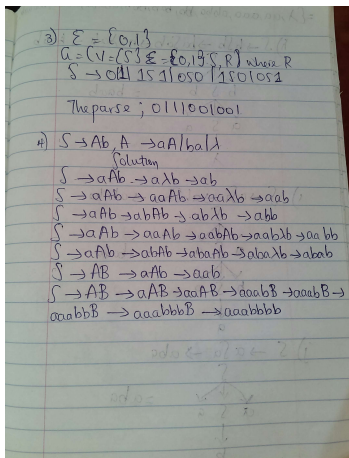 3) Σ = {0,1}
G = (V={S} Σ = {0,1} S, R) where R
S → 01 | 1S1 | 0S0 | 1S0 | 0S1
The parse ; 0111001001
4) S → Ab, A → aA | ba | λ
Solution
S → aAb → aλb → ab
S → aAb → aaAb → aaλb → aab
S → aAb → abAb → abλb → abb
S → aAb → aaAb → aabAb → aabλb → aabb
S → aAb → abAb → abaAb → abaλb → abab
S → AB → aAb → aab
S → AB → aAB → aaAB → aaabB → aaabB →
aaabbB → aaabbbB → aaabbbb